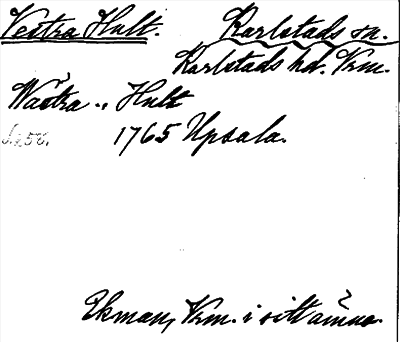 Vestra Hult. Karlstads sn.
Karlstads hd. Vrm.
Wästra „ Hult
1765 Upsala.
Ekman, Vrm. i sitt ämne.